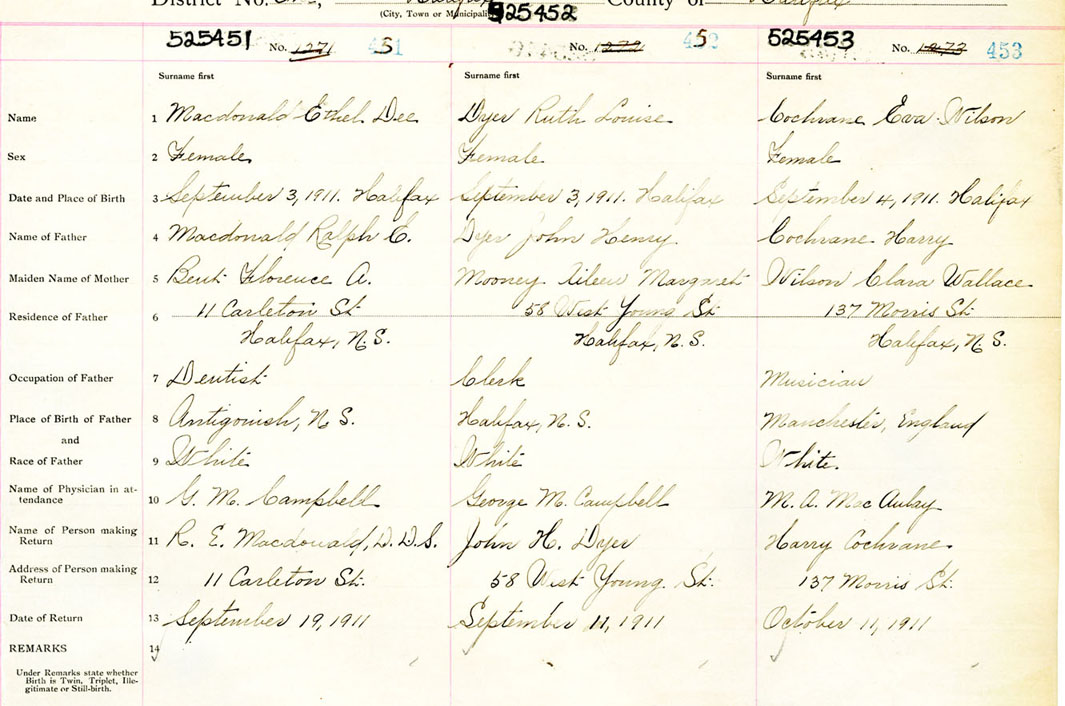 District No. One, Halifax County of Halifax
(City, Town or Municipality)
525452
525451 No. 1271 451
No. 1272 452
525453 No. 1273 453
Surname first Surname first Surname first
Name 1 Macdonald Ethel Dee Dyer Ruth Louise Cochrane Eva Wilson
Sex 2 Female Female Female
Date and Place of Birth 3 September 3, 1911. Halifax September 3, 1911. Halifax September 4, 1911. Halifax
Name of Father 4 Macdonald Ralph E. Dyer John Henry Cochrane Harry
Maiden Name of Mother 5 Bent Florence A. Mooney Eileen Margaret Wilson Clara Wallace
Residence of Father 6 11 Carleton St. 58 West Young St. 137 Morris St.
Halifax, N.S. Halifax, N.S. Halifax, N.S.
Occupation of Father 7 Dentist Clerk Musician
Place of Birth of Father 8 Antigonish, N.S. Halifax, N.S. Manchester, England
and
Race of Father 9 White White White.
Name of Physician in at-
tendance 10 G. M. Campbell George M. Campbell M. A. MacAulay
Name of Person making
Return 11 R. E. Macdonald, D.D.S. John H. Dyer Harry Cochrane
Address of Person making
Return 12 11 Carleton St. 58 West Young St. 137 Morris St.
Date of Return 13 September 19, 1911 September 11, 1911 October 11, 1911
REMARKS 14
Under Remarks state whether
Birth is Twin, Triplet, Ille-
gitimate or Still-birth.